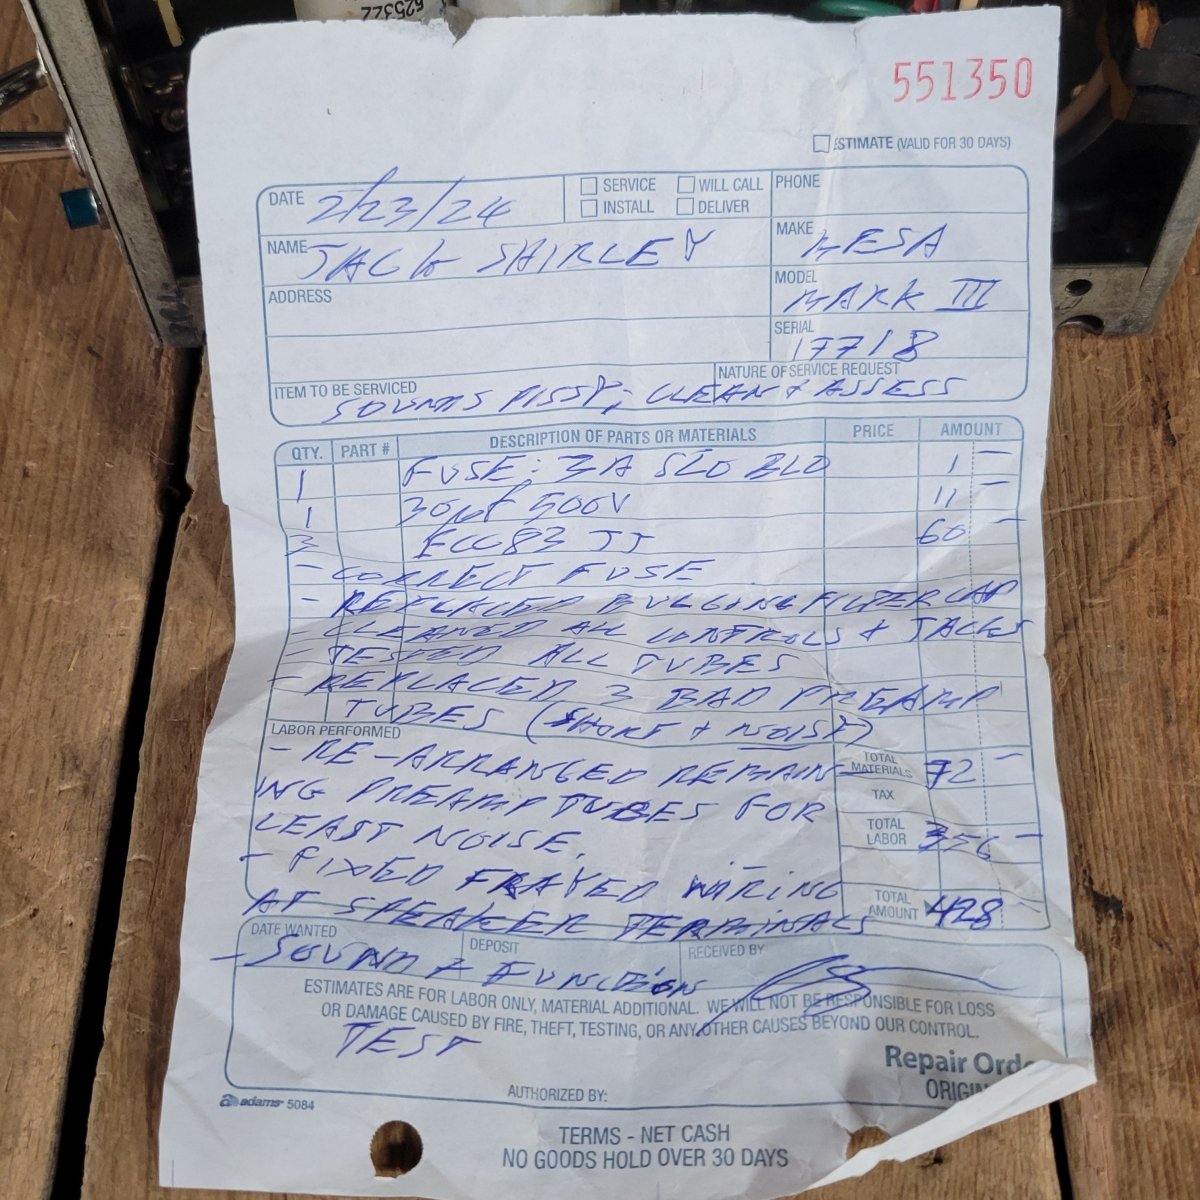 625322
551350
ESTIMATE (VALID FOR 30 DAYS)
DATE 2/23/24 SERVICE WILL CALL PHONE
INSTALL DELIVER
NAME JACK SHIRLEY MAKE MESA
ADDRESS MODEL MARK III
SERIAL 17718
ITEM TO BE SERVICED NATURE OF SERVICE REQUEST
SOUNDS PISSY; CLEAN + ASSESS
QTY. PART # DESCRIPTION OF PARTS OR MATERIALS PRICE AMOUNT
1 FUSE: 3A SLO BLO 1 –
1 30µf 500V 11 –
3 ECC83 JJ 60 –
– CORRECT FUSE
– REPLACED BULGING FILTER CAP
– CLEANED ALL CONTROLS + JACKS
– TESTED ALL TUBES
– REPLACED 3 BAD PREAMP
TUBES (SHORT + NOISE)
LABOR PERFORMED
– RE-ARRANGED REMAIN- TOTAL MATERIALS 72 –
ING PREAMP TUBES FOR TAX
LEAST NOISE. TOTAL LABOR 356 –
– FIXED FRAYED WIRING
AT SPEAKER TERMINALS TOTAL AMOUNT 428
DATE WANTED DEPOSIT RECEIVED BY
– SOUND + FUNCTION
ESTIMATES ARE FOR LABOR ONLY, MATERIAL ADDITIONAL. WE WILL NOT BE RESPONSIBLE FOR LOSS
OR DAMAGE CAUSED BY FIRE, THEFT, TESTING, OR ANY OTHER CAUSES BEYOND OUR CONTROL.
TEST
Repair Orde
ORIGIN
AUTHORIZED BY:
adams 5084
TERMS - NET CASH
NO GOODS HOLD OVER 30 DAYS